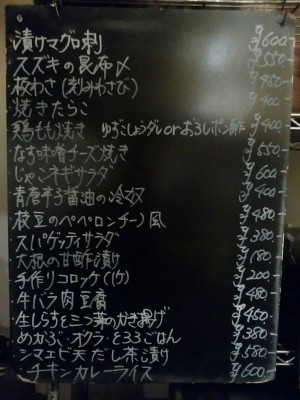 漬けマグロ刺 ¥600-
スズキの昆布〆 ¥550-
板わさ(刻みわさび) ¥450-
焼きたらこ ¥400-
鶏もも焼き ゆずこしょうダレorおろしポン酢 ¥400-
なす味噌チーズ焼き ¥550-
じゃこネギサラダ ¥600-
青唐辛子醤油の冷奴 ¥400-
枝豆のペペロンチーノ風 ¥480-
スパゲッティサラダ ¥380-
大根の甘酢漬け ¥180-
手作りコロッケ(1ケ) ¥200-
・牛バラ肉豆腐 ¥480-
・生しらすと三つ葉のかき揚げ ¥450-
・めかぶ・オクラ・とろろごはん ¥380-
・シマエビ天だし茶漬け ¥580-
・チキンカレーライス ¥600-